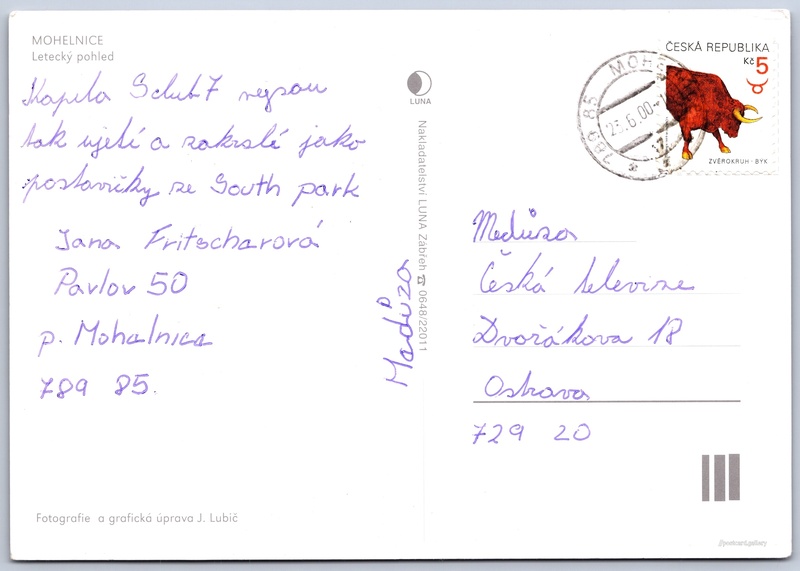 MOHELNICE
Letecký pohled
Kapela Sclub7 nejsou
tak ujetí a zakrslé jako
postavičky ze South park
Jana Fritscharová
Pavlov 50
p. Mohelnice
789 85.
Fotografie a grafická úprava J. Lubič
LUNA
Nakladatelství LUNA Zábřeh ☎ 0648/22011
Medůza
ČESKÁ REPUBLIKA
Kč 5
ZVĚROKRUH - BYK
789 85 MOHE
23.6.00
Medůza
Česká televize
Dvořákova 18
Ostrava
729 20
@postcard.gallery